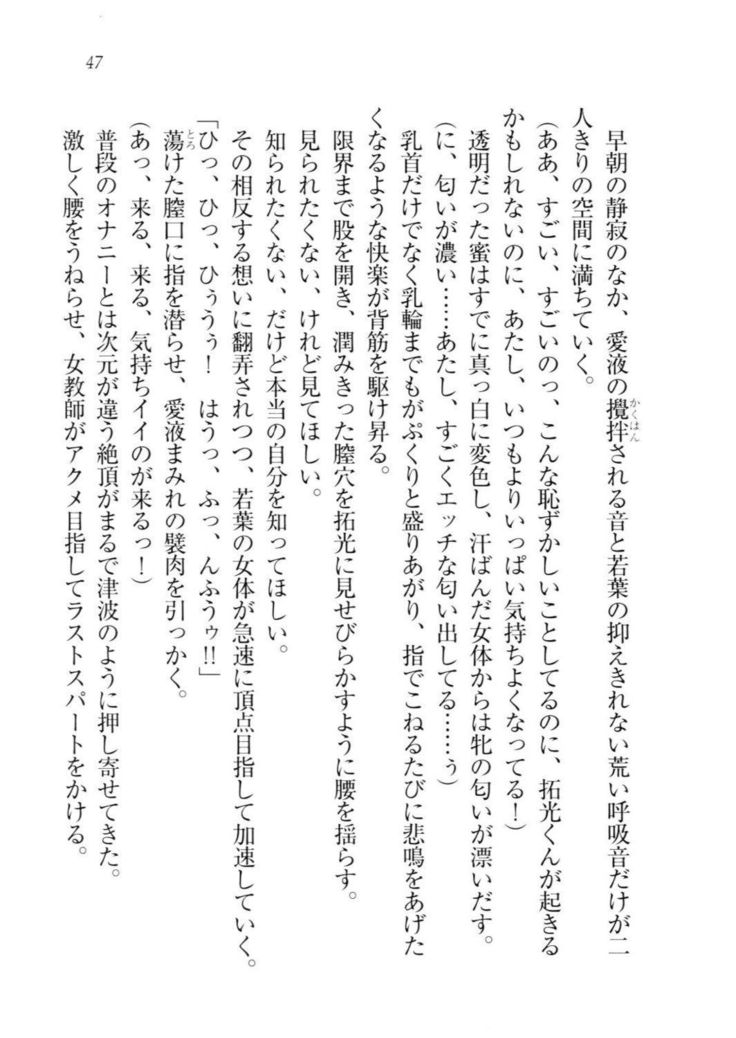 47
早朝の静寂のなか、愛液の攪拌される音と若葉の抑えきれない荒い呼吸音だけが二
かくはん
人きりの空間に満ちていく。
(ああ、すごい、すごいのっ、こんな恥ずかしいことしてるのに、拓光くんが起きる
かもしれないのに、あたし、いつもよりいっぱい気持ちよくなってる!)
透明だった蜜はすでに真っ白に変色し、汗ばんだ女体からは牝の匂いが漂いだす。
(に、匂いが濃い……あたし、すごくエッチな匂い出してる……ぅ)
乳首だけでなく乳輪までもがぷくりと盛りあがり、指でこねるたびに悲鳴をあげた
くなるような快楽が背筋を駆け昇る。
限界まで股を開き、潤みきった膣穴を拓光に見せびらかすように腰を揺らす。
見られたくない、けれど見てほしい。
知られたくない、だけど本当の自分を知ってほしい。
その相反する想いに翻弄されつつ、若葉の女体が急速に頂点目指して加速していく。
「ひっ、ひっ、ひぅうぅ! はうっ、ふっ、んふうゥ!!」
蕩けた膣口に指を潜らせ、愛液まみれの襞肉を引っかく。
とろ
(あっ、来る、来る、気持ちイイのが来るっ!)
普段のオナニーとは次元が違う絶頂がまるで津波のように押し寄せてきた。
激しく腰をうねらせ、女教師がアクメ目指してラストスパートをかける。